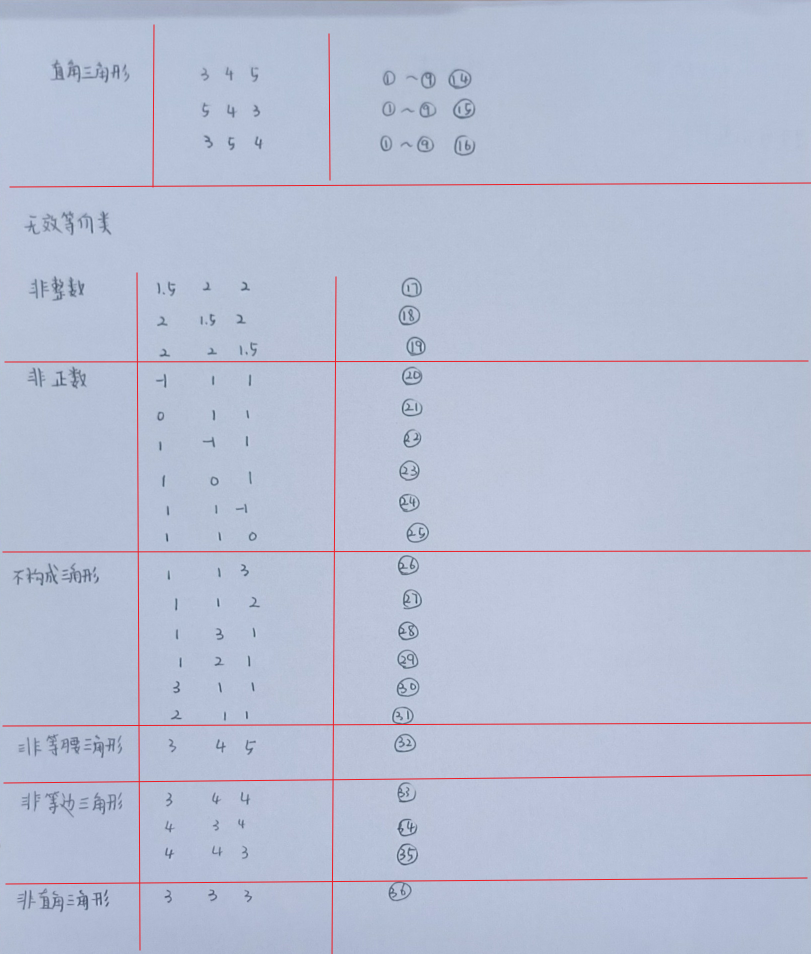 直角三角形 3 4 5 ①～⑨ ⑭
5 4 3 ①～⑨ ⑮
3 5 4 ①～⑨ ⑯
无效等价类
非整数 1.5 2 2 ⑰
2 1.5 2 ⑱
2 2 1.5 ⑲
非正数 -1 1 1 ⑳
0 1 1 ㉑
1 -1 1 ㉒
1 0 1 ㉓
1 1 -1 ㉔
1 1 0 ㉕
不构成三角形 1 1 3 ㉖
1 1 2 ㉗
1 3 1 ㉘
1 2 1 ㉙
3 1 1 ㉚
2 1 1 ㉛
非等腰三角形 3 4 5 ㉜
非等边三角形 3 4 4 ㉝
4 3 4 ㉞
4 4 3 ㉟
非直角三角形 3 3 3 ㊱